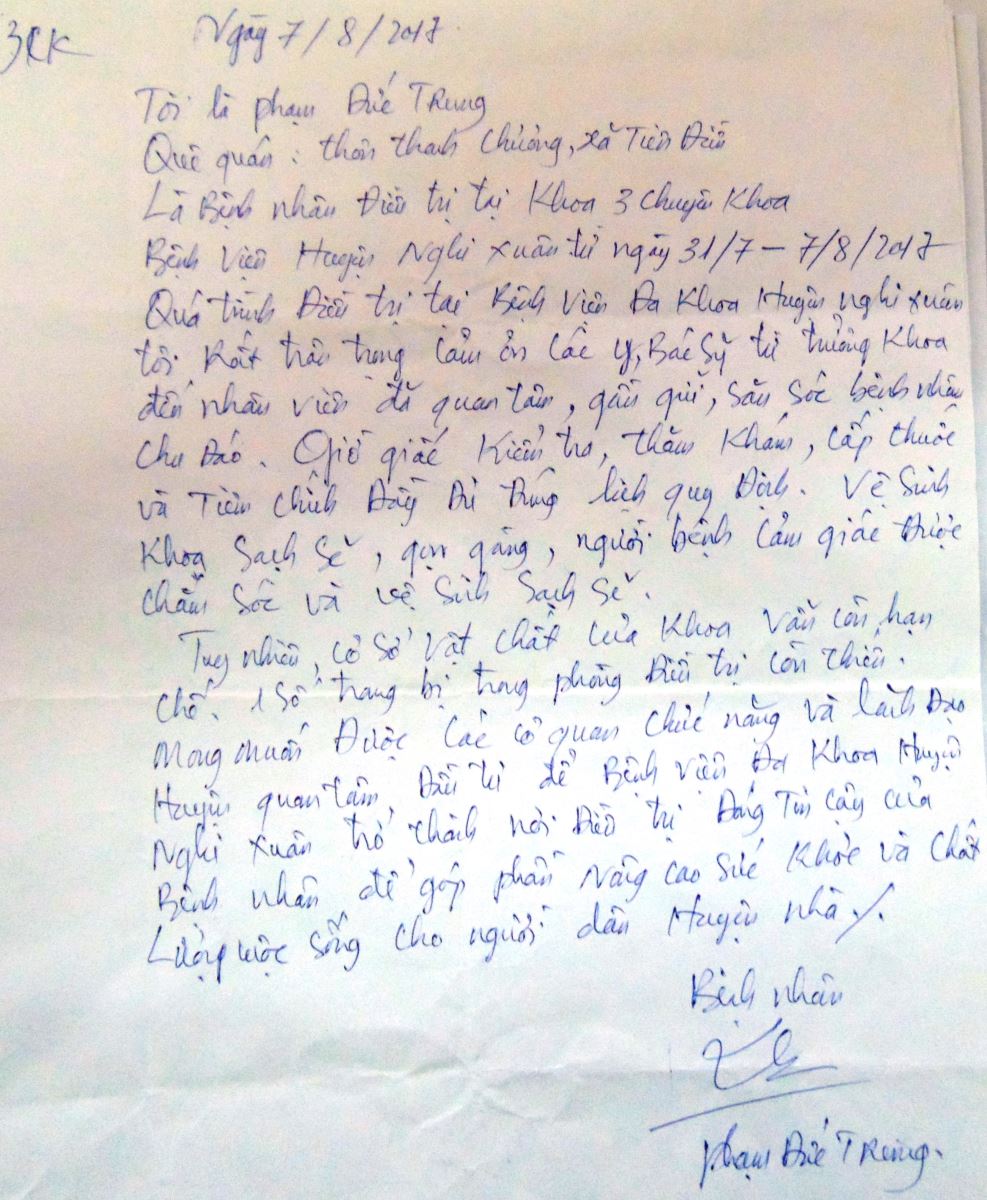 3CK
Ngày 7/8/2017
Tôi là phạm Đức Trung
Quê quán : thôn thanh Chương, xã Tiên Điền
Là Bệnh nhân Điều trị tại Khoa 3 chuyên Khoa
Bệnh viện Huyện Nghi Xuân từ ngày 31/7 - 7/8/2017
Quá trình Điều trị tại Bệnh viện Đa Khoa Huyện nghi xuân
tôi Rất trân trọng cảm ơn các y, Bác Sỹ từ trưởng Khoa
đến nhân viên đã quan tâm, gần gũi, săn sóc bệnh nhân
Chu Đáo. Giờ giấc Kiểm tra, thăm Khám, cấp thuốc
và Tiêm chích Đầy Đủ Đúng lịch quy Định. Vệ Sinh
Khoa Sạch Sẽ, gọn gàng, người bệnh cảm giác Được
chăm sóc và vệ sinh Sạch Sẽ.
Tuy nhiên, cơ sở vật chất của Khoa vẫn còn hạn
chế. 1 số trang bị trong phòng Điều trị còn thiếu.
Mong muốn Được các cơ quan chức năng và lãnh Đạo
Huyện quan tâm, Đầu tư để Bệnh viện Đa Khoa Huyện
Nghi Xuân trở thành nơi Điều trị Đáng Tin cậy của
Bệnh nhân để góp phần nâng cao sức Khỏe và chất
Lượng cuộc sống cho người dân Huyện nhà ./.
Bệnh nhân
phạm Đức Trung.